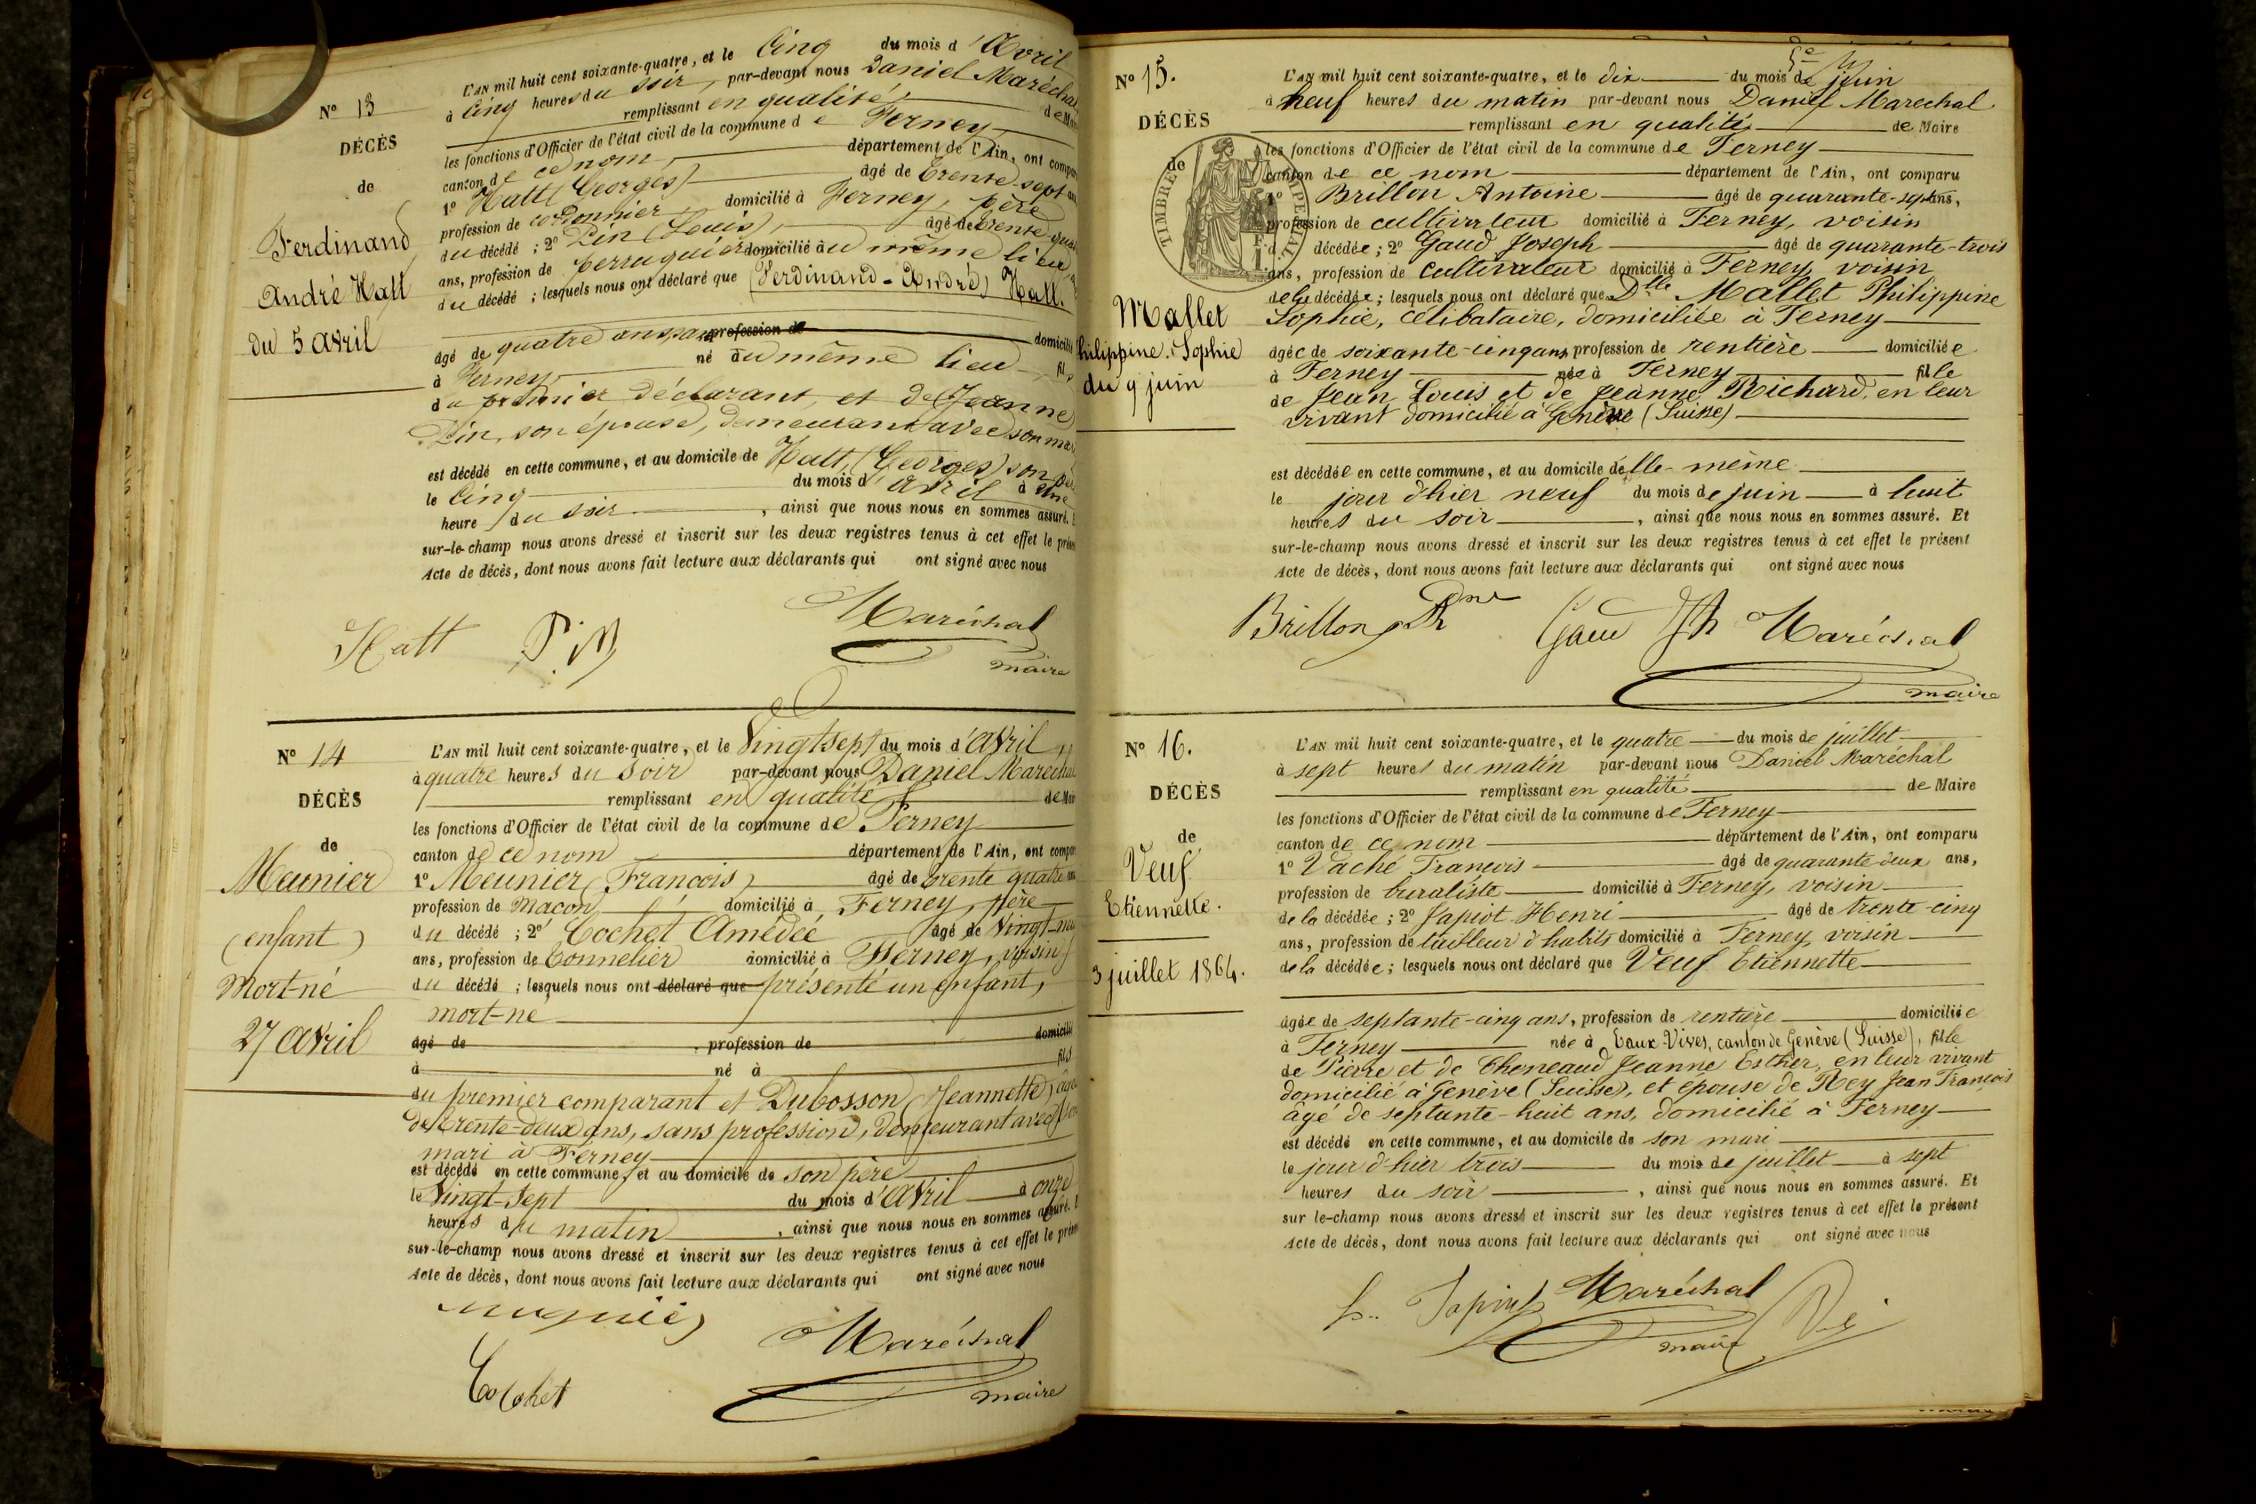 Nº 13
DÉCÈS
de
Ferdinand
André Hatt
du 5 avril
L'AN mil huit cent soixante-quatre, et le Cinq du mois d'Avril
à Cinq heures du soir, par-devant nous Daniel Maréchal
remplissant en qualité, de
les fonctions d'Officier de l'état civil de la commune de Ferney
canton de ce nom, département de l'Ain, ont
1º Hatt (Georges) âgé de trente-sept
profession de cordonnier, domicilié à Ferney, père
du décédé ; 2º Pin (Louis), âgé de trente
ans, profession de perruquier domicilié au même lieu
du décédé ; lesquels nous ont déclaré que (Ferdinand-André) Hatt.
âgé de quatre ans, profession de domicilié
à Ferney, né au même lieu fils
du premier déclarant, et de (Jeanne)
Pin, son épouse, demeurant avec son
est décédé en cette commune, et au domicile de Hatt (Georges) son
le Cinq du mois d'avril à une
heure du soir, ainsi que nous nous en sommes assuré.
sur-le-champ nous avons dressé et inscrit sur les deux registres tenus à cet effet le
Acte de décès, dont nous avons fait lecture aux déclarants qui ont signé avec nous
Hatt Pin Maréchal
maire
Nº 14
DÉCÈS
de
Meunier
(enfant)
Mort-né
27 avril
L'AN mil huit cent soixante-quatre, et le Vingt sept du mois d'avril
à quatre heures du soir par-devant nous Daniel
remplissant en qualité de
les fonctions d'Officier de l'état civil de la commune de Ferney
canton de ce nom département de l'Ain, ont
1º Meunier (François) âgé de trente quatre
profession de Maçon domicilié à Ferney, père
du décédé ; 2º Cochet Amédée âgé de Vingt
ans, profession de Tonnelier domicilié à Ferney, voisin
du décédé ; lesquels nous ont déclaré que présenté un enfant,
mort-né
âgé de profession de domicilié
à né à fils
du premier comparant et Dubosson (Jeannette)
de trente-deux ans, sans profession, demeurant avec
mari à Ferney
est décédé en cette commune, et au domicile de son père
le Vingt-Sept du mois d'avril à onze
heures du matin, ainsi que nous nous en sommes assuré.
sur-le-champ nous avons dressé et inscrit sur les deux registres tenus à cet effet le
Acte de décès, dont nous avons fait lecture aux déclarants qui ont signé avec nous
Maréchal
Cochet maire
Nº 15.
DÉCÈS
de
TIMBRE IMPERIAL
Mallet
Philippine-Sophie
du 9 juin
L'AN mil huit cent soixante-quatre, et le dix du mois de juin
à neuf heures du matin par-devant nous Daniel Marechal
remplissant en qualité de Maire
les fonctions d'Officier de l'état civil de la commune de Ferney
canton de ce nom département de l'Ain, ont comparu
1º Brillon Antoine âgé de quarante-sept ans,
profession de cultivateur domicilié à Ferney, voisin
décédée ; 2º Gaud Joseph âgé de quarante-trois
ans, profession de cultivateur domicilié à Ferney, voisin
de la décédée ; lesquels nous ont déclaré que Dlle Mallet Philippine
Sophie, célibataire, domiciliée à Ferney
âgée de soixante-cinq ans, profession de rentière domiciliée
à Ferney née à Ferney fille
de Jean Louis et de Jeanne Richard, en leur
vivant domicilié à Genève (Suisse)
est décédée en cette commune, et au domicile d'elle-même
le jour d'hier neuf du mois de juin à huit
heures du soir, ainsi que nous nous en sommes assuré. Et
sur-le-champ nous avons dressé et inscrit sur les deux registres tenus à cet effet le présent
Acte de décès, dont nous avons fait lecture aux déclarants qui ont signé avec nous
Brillon Gaud Jh Maréchal
maire
Nº 16.
DÉCÈS
de
Veuf
Etiennette.
3 juillet 1864.
L'AN mil huit cent soixante-quatre, et le quatre du mois de juillet
à sept heures du matin par-devant nous Daniel Maréchal
remplissant en qualité de Maire
les fonctions d'Officier de l'état civil de la commune de Ferney
canton de ce nom département de l'Ain, ont comparu
1º Vaché François âgé de quarante-deux ans,
profession de buraliste domicilié à Ferney, voisin
de la décédée ; 2º Japiot Henri âgé de trente-cinq
ans, profession de tailleur d'habits domicilié à Ferney, voisin
de la décédée ; lesquels nous ont déclaré que Veuf Etiennette
âgée de septante-cinq ans, profession de rentière domiciliée
à Ferney née à Eaux-Vives, canton de Genève (Suisse), fille
de Pierre et de Cheneaud Jeanne Esther, en leur vivant
domicilié à Genève (Suisse), et épouse de Rey Jean François
âgé de septante-huit ans, domicilié à Ferney
est décédé en cette commune, et au domicile de son mari
le jour d'hier trois du mois de juillet à sept
heures du soir, ainsi que nous nous en sommes assuré. Et
sur le-champ nous avons dressé et inscrit sur les deux registres tenus à cet effet le présent
Acte de décès, dont nous avons fait lecture aux déclarants qui ont signé avec nous
Japiot Maréchal
maire